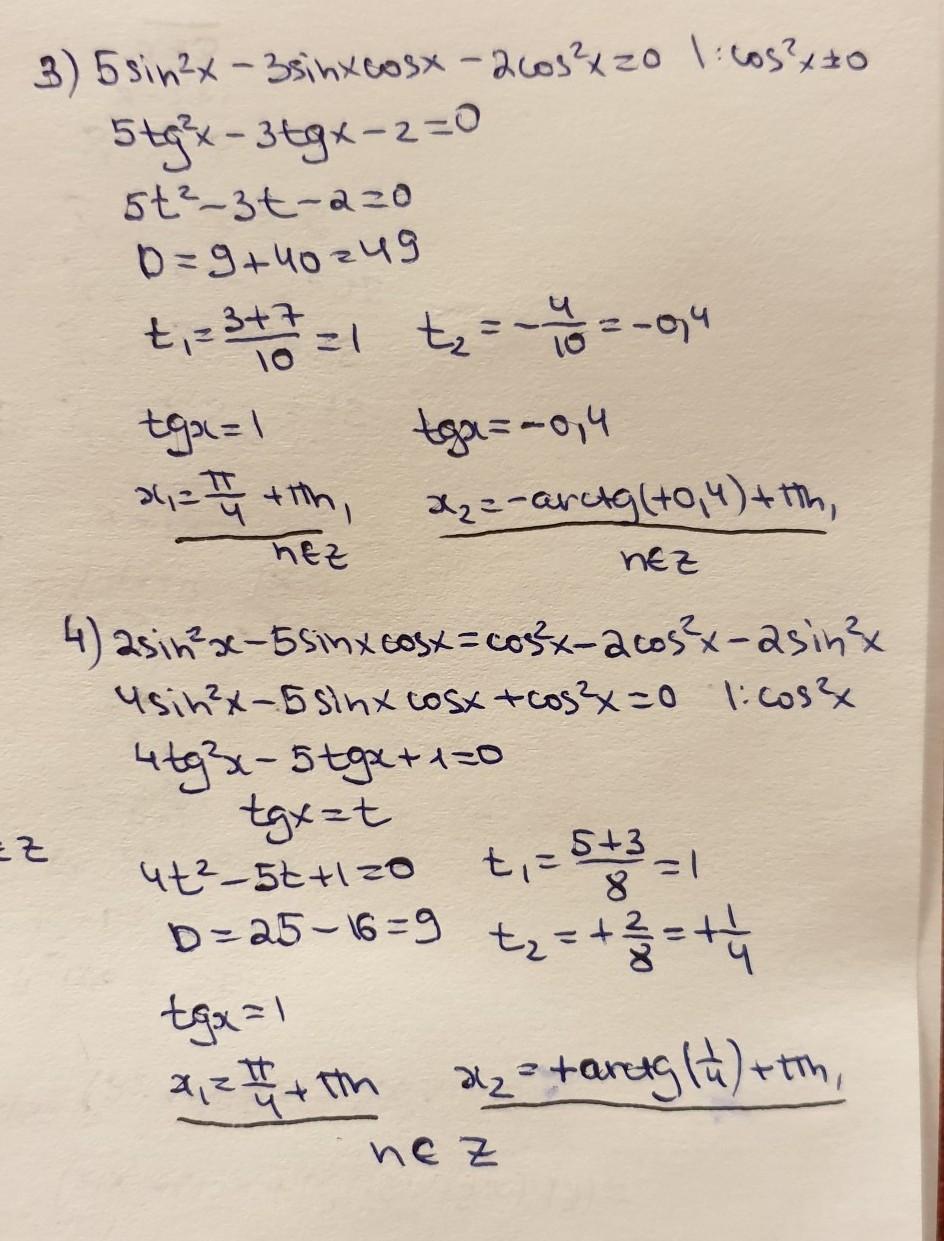 3) 5sin²x - 3sinxcosx - 2cos²x=0 |:cos²x≠0
5tg²x - 3tgx - 2 = 0
5t² - 3t - 2 = 0
D = 9 + 40 = 49
t₁ = (3+7)/10 = 1 t₂ = -4/10 = -0,4
tgx = 1 tgx = -0,4
x₁ = π/4 + πn, x₂ = -arctg(+0,4) + πn,
n∈Z n∈Z
4) 2sin²x - 5sinxcosx = cos²x - 2cos²x - 2sin²x
4sin²x - 5sinx cosx + cos²x = 0 |:cos²x
4tg²x - 5tgx + 1 = 0
tgx = t
∈ Z
4t² - 5t + 1 = 0 t₁ = (5+3)/8 = 1
D = 25 - 16 = 9 t₂ = +2/8 = +1/4
tgx = 1
x₁ = π/4 + πn x₂ = +arctg(1/4) + πn,
n ∈ Z